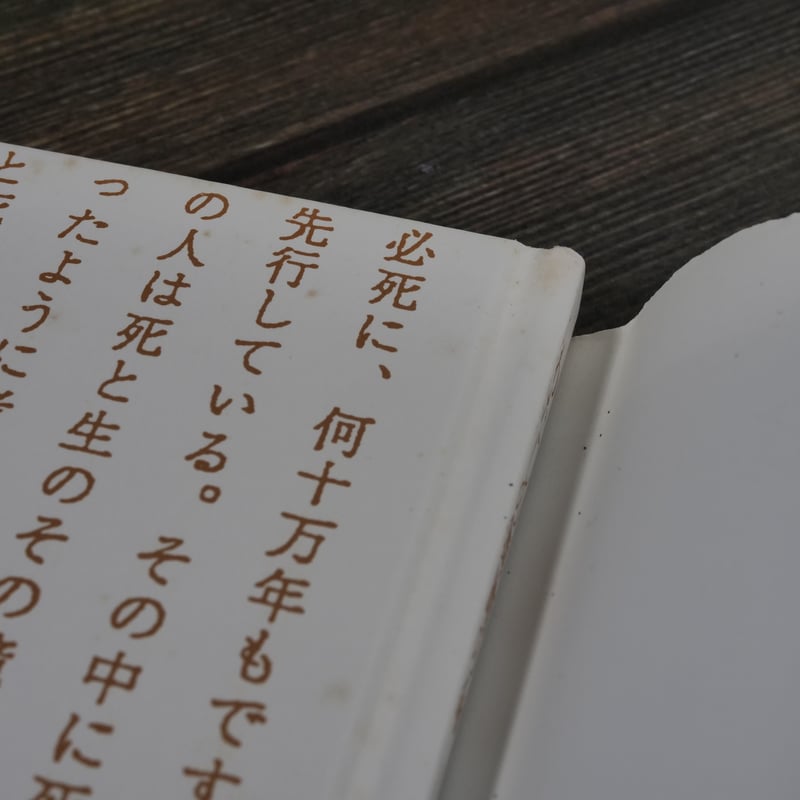 必死に、何十万年もです
先行している。その中に死
の人は死と生のその
ったように
と